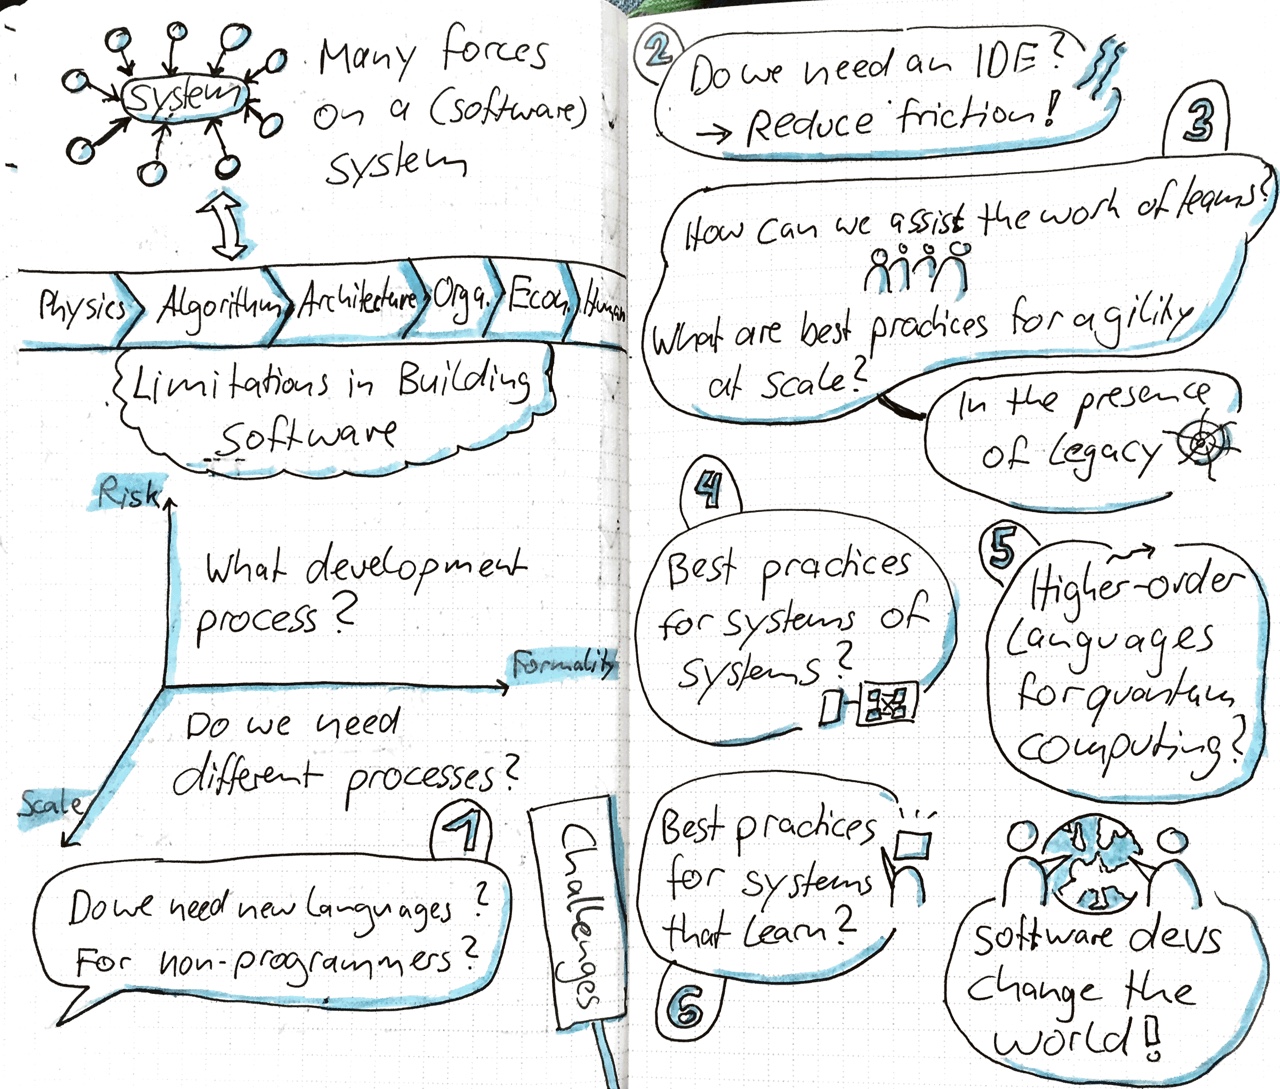 System
Many forces
on a (software)
system
Physics
Algorithm
Architecture
Orga.
Econ.
Human
Limitations in Building
Software
Risk
What development
process?
Formality
Do we need
different processes?
Scale
1
Do we need new languages?
For non-programmers?
Challenges
2
Do we need an IDE?
→ Reduce friction!
3
How can we assist the work of teams?
What are best practices for agility
at scale?
In the presence
of Legacy
4
Best practices
for systems of
systems?
5
Higher-order
Languages
for quantum
computing?
Best practices
for systems
that learn?
6
Software devs
change the
world!